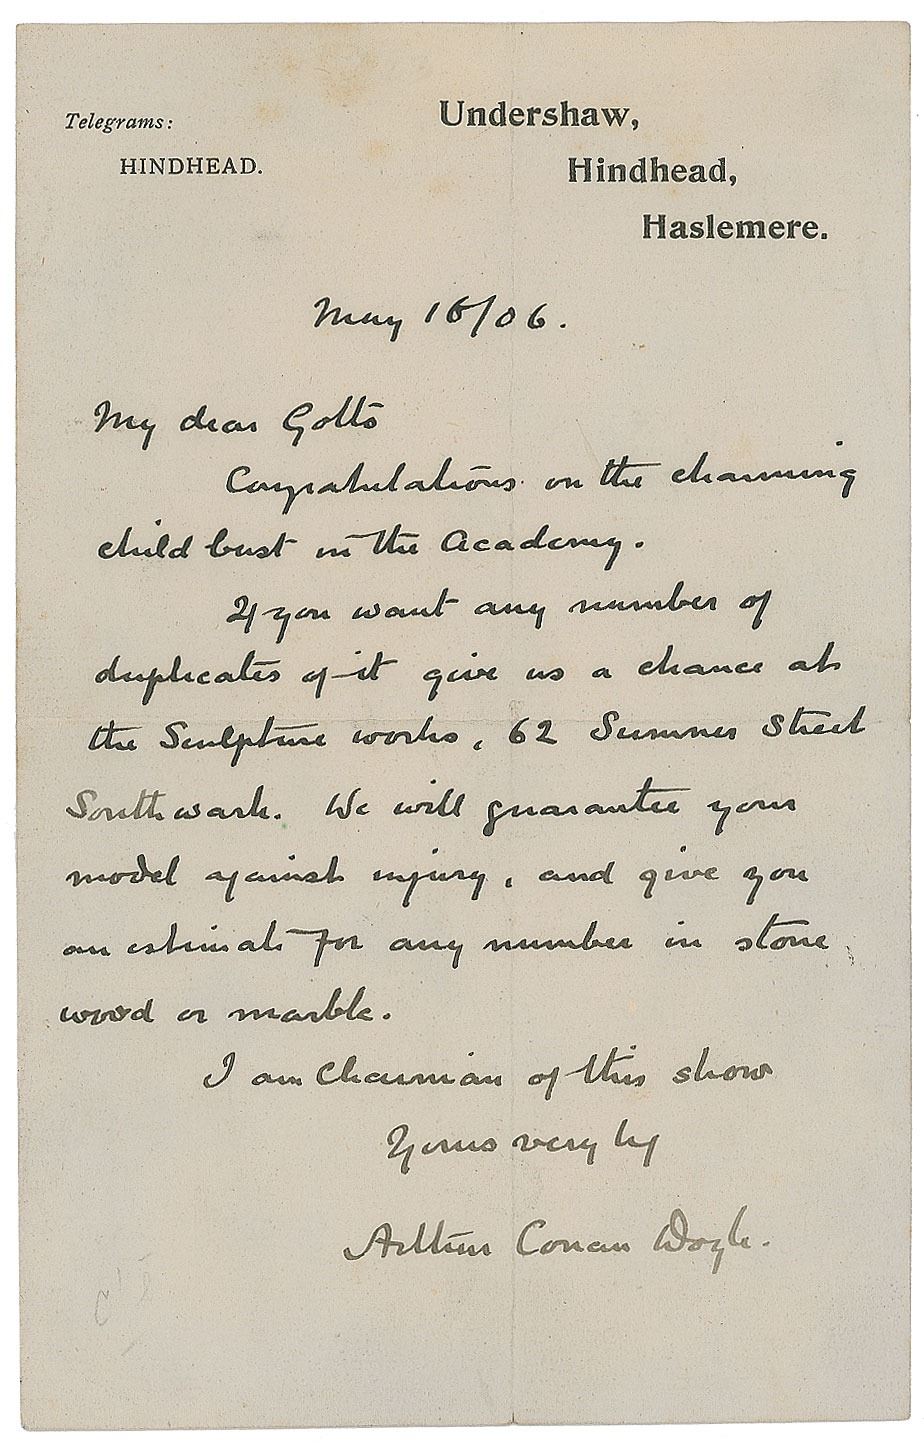 Telegrams:
HINDHEAD.
Undershaw,
Hindhead,
Haslemere.
May 16/06.
My dear Gotts
Congratulations on the charming
child bust in the Academy.
If you want any number of
duplicates of it give us a chance at
the Sculpture works, 62 Sumner Street
Southwark. We will guarantee your
model against injury, and give you
an estimate for any number in stone
wood or marble.
I am Chairman of this show
Yours very
Arthur Conan Doyle.